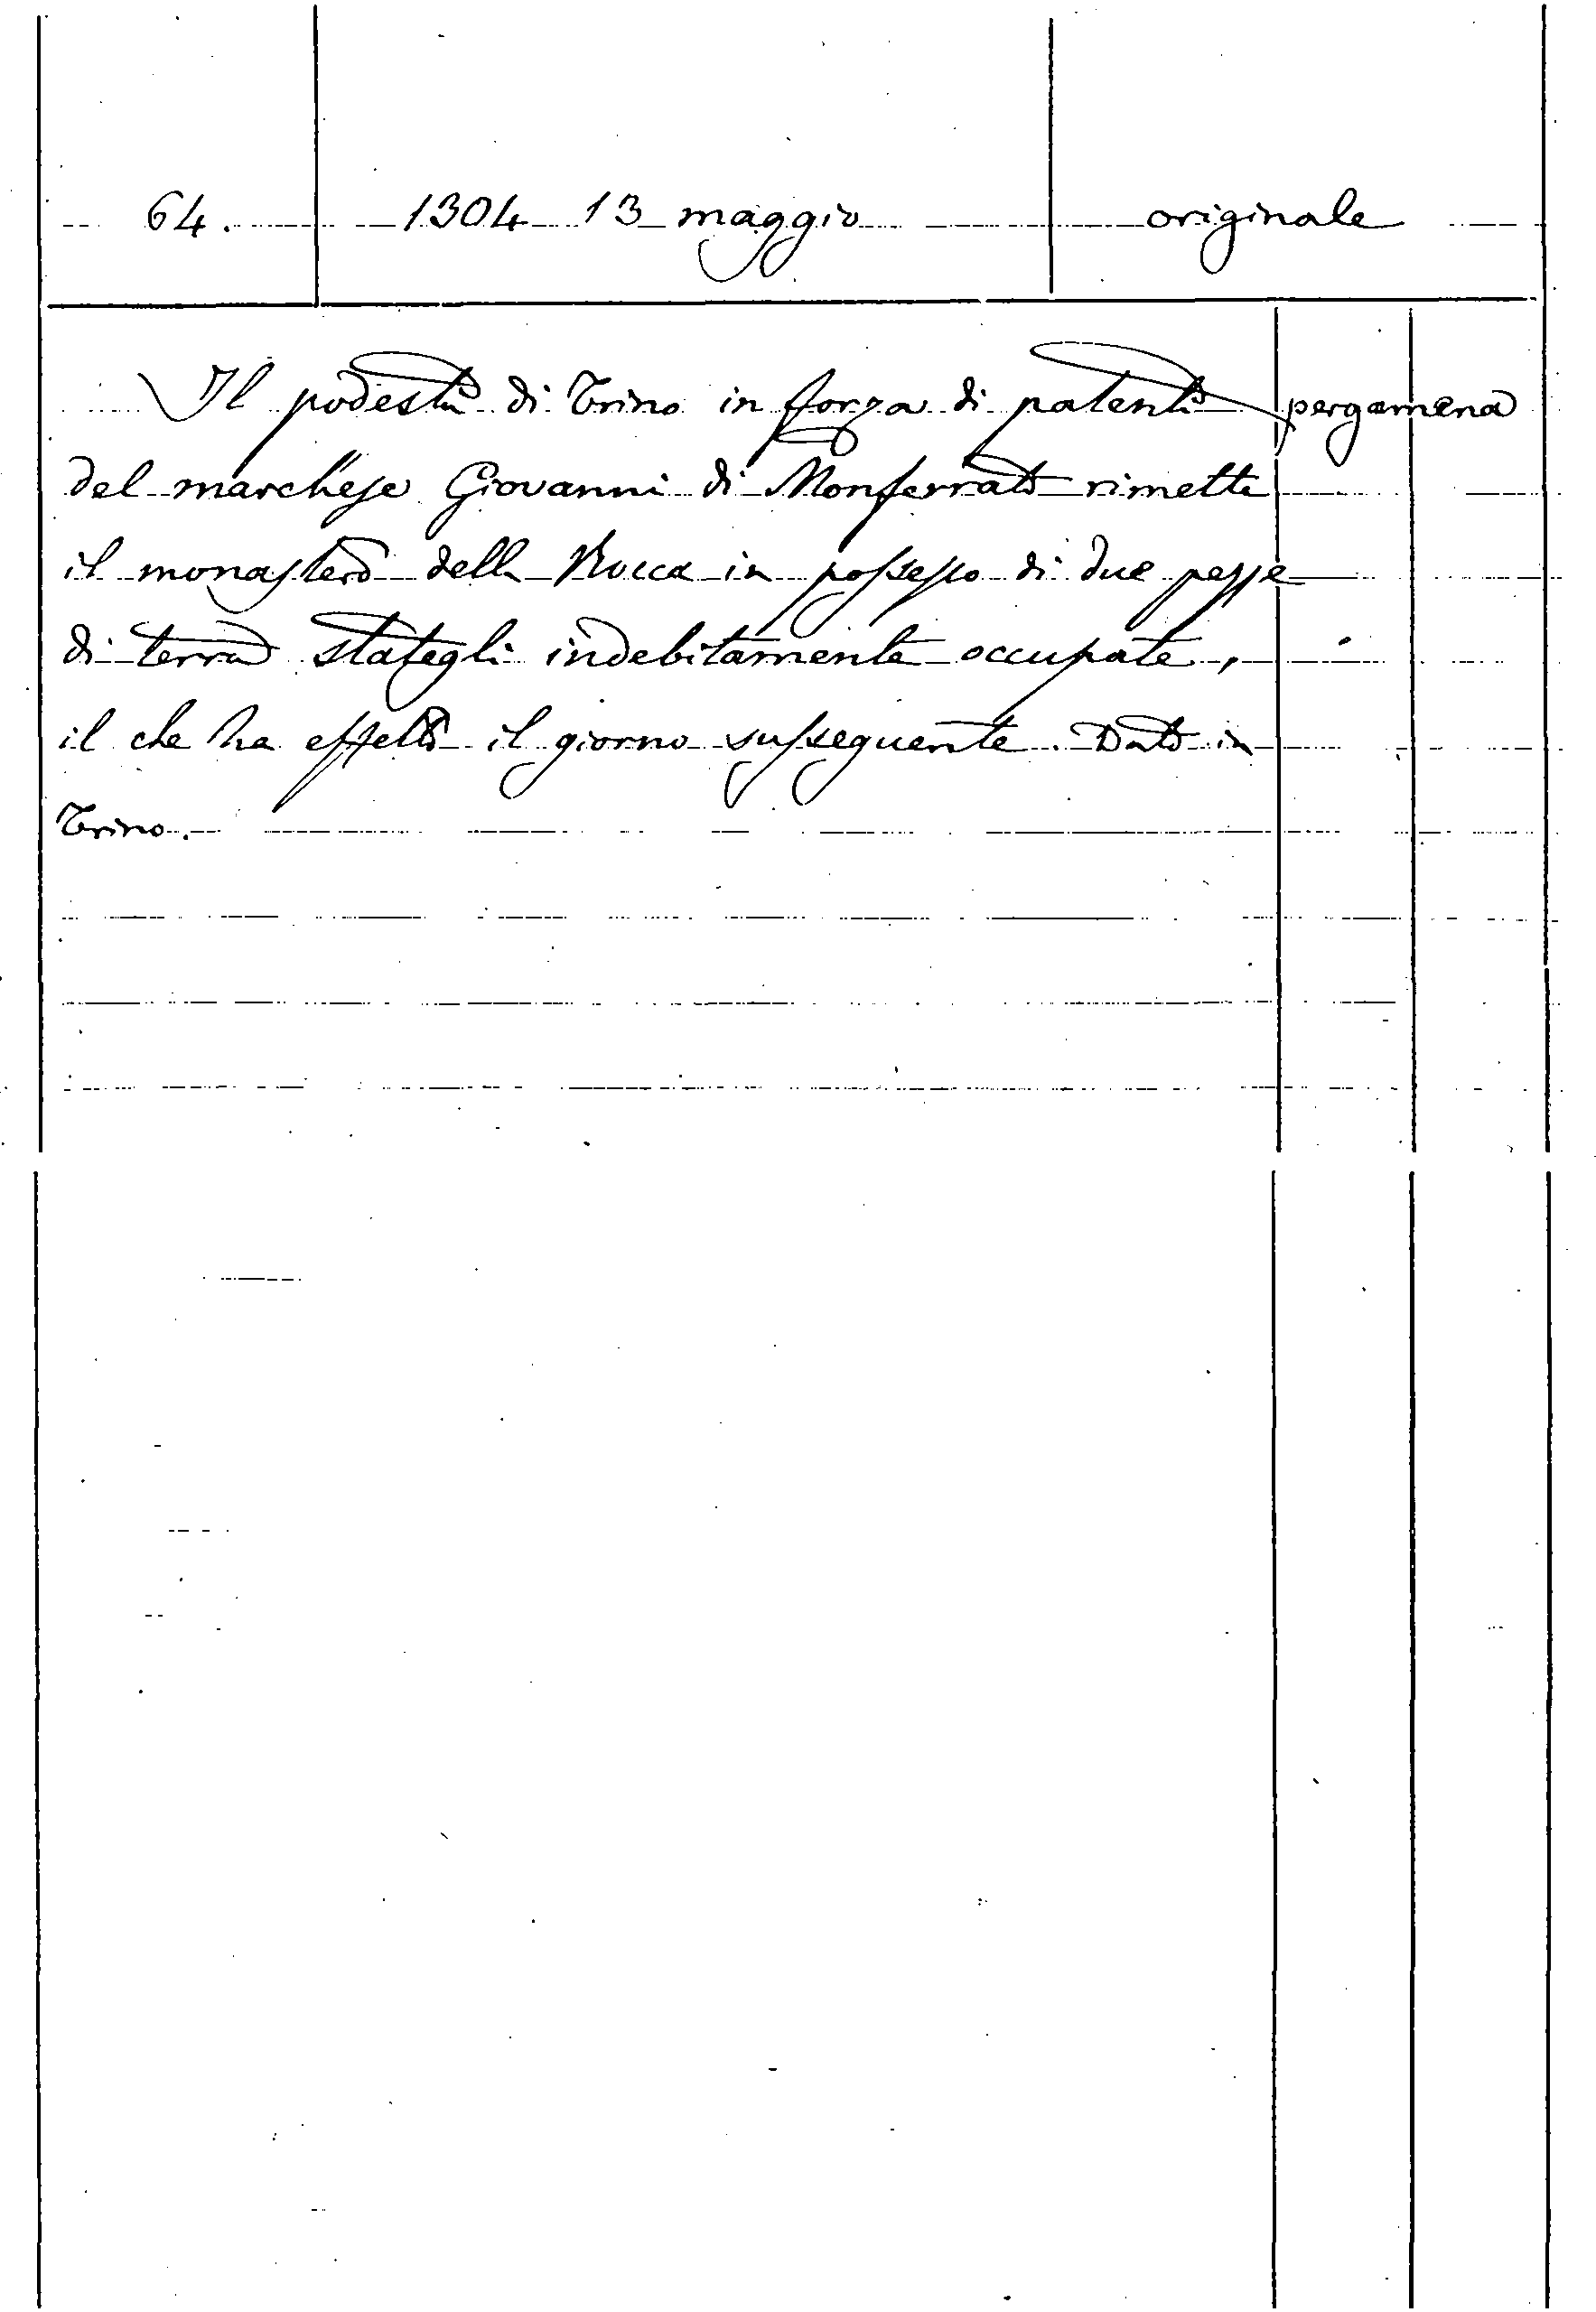 64. 1304 13 maggio originale
Il podestà di Trino in forza di patenti pergamena
del marchese Giovanni di Monferrato rimette
il monastero della Rocca in possesso di due pezze
di terra stategli indebitamente occupate,
il che ha effetto il giorno susseguente. Dato in
Trino.